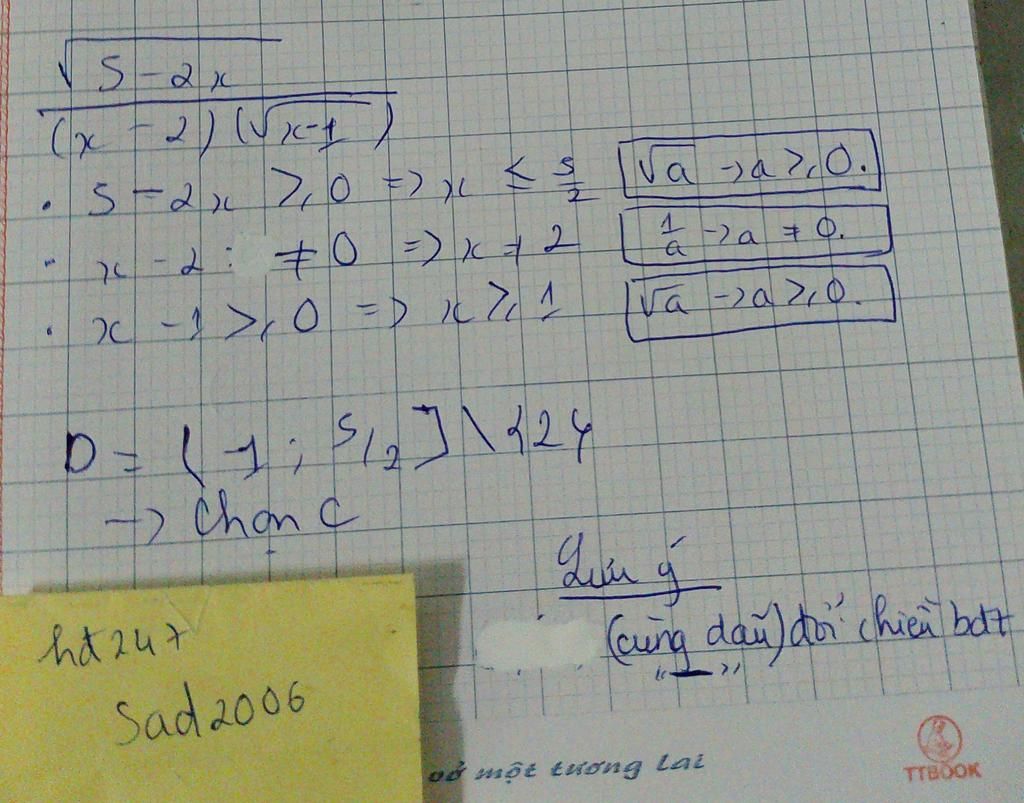 √5 - 2x
(x - 2)(√x-1)
. 5 - 2x ≥ 0 => x ≤ 5/2 √a → a ≥ 0.
- x - 2 : ≠ 0 => x ≠ 2 1/a → a ≠ 0.
. x - 1 ≥ 0 => x ≥ 1 √a → a ≥ 0.
D = ( 1 ; 5/2 ] \ {2}
→ Chọn C
Lưu ý
(cùng dấu) đổi chiều bđt
"-"
hđ247
Sad2006
một tương lai
TTBOOK